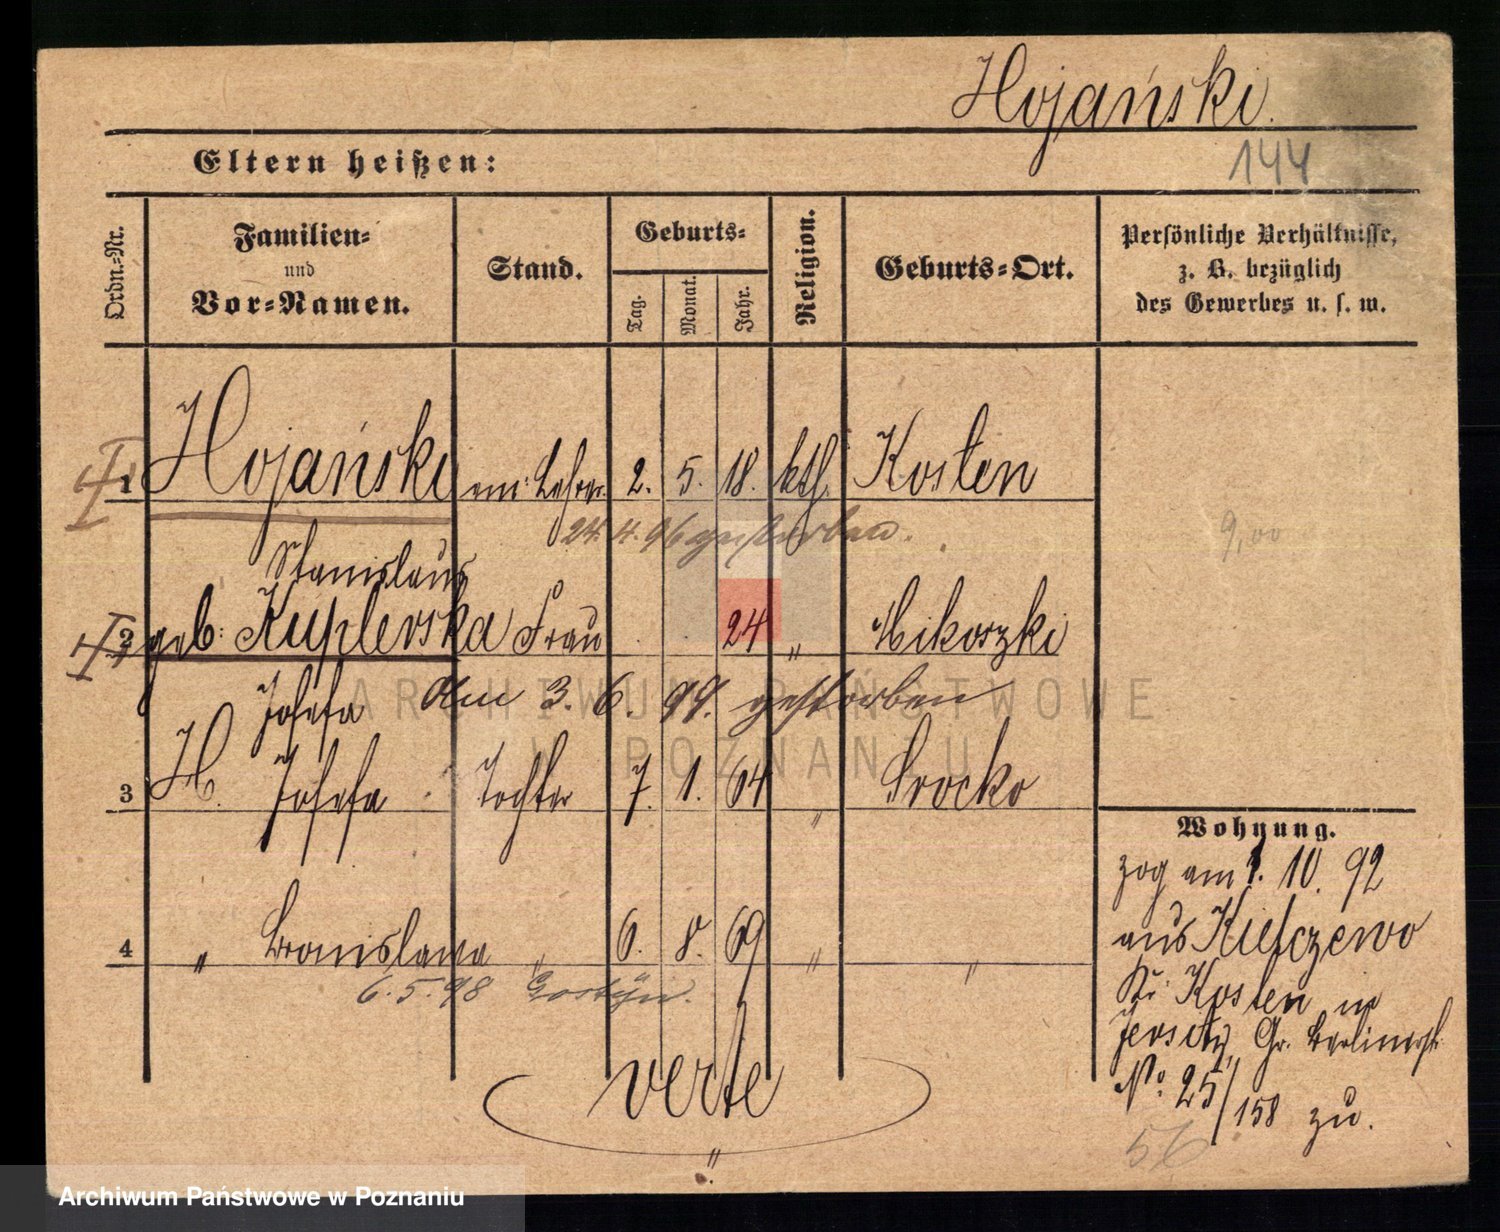 Hojański.
144
Eltern heißen:
Ordn.-Nr.
Familien-
und
Vor-Namen.
Stand.
Geburts-
Tag.
Monat.
Jahr.
Religion.
Geburts-Ort.
Persönliche Verhältnisse,
z. B. bezüglich
des Gewerbes u. s. w.
1 Hojański em: Lehrer 2. 5. 18. kth. Kosten
Stanislaus
24. 4. 96 gestorben.
9,00
2 geb: Kuplerska Frau 24 " Mikoszki
Josefa
Am 3. 6. 99. gestorben
3 H. Josefa Tochter 7. 1. 64 " Srocko
4 " Bronislawa " 6. 8. 69 " "
6. 5. 98 Gostyn.
verte
"
Wohnung.
zog am 1. 10. 92
aus Kielczewo
Kr: Kosten in
Jersitz, Gr. Berlinerstr.
No. 25/158 zu.
56
ARCHIWUM PAŃSTWOWE
W POZNANIU
Archiwum Państwowe w Poznaniu